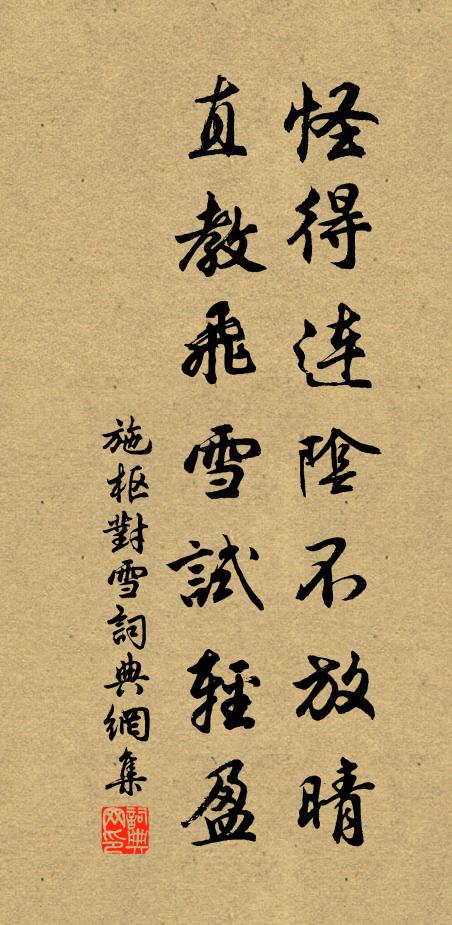 怪得連陰不放晴
直教飛雪試輕盈
施枢對雪詞典網集
詞典網印